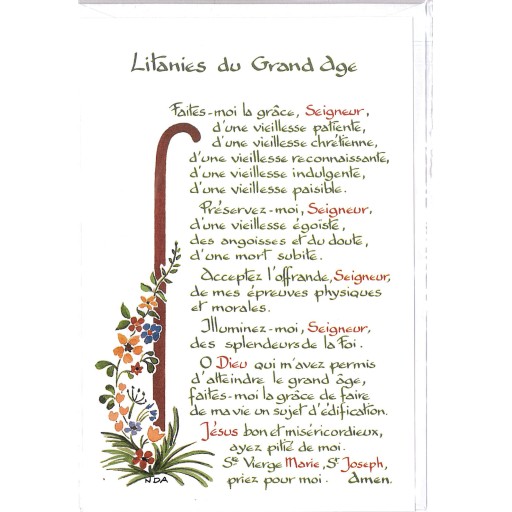 Litanies du Grand Age
Faites-moi la grâce, Seigneur,
d'une vieillesse patiente,
d'une vieillesse chrétienne,
d'une vieillesse reconnaissante,
d'une vieillesse indulgente,
d'une vieillesse paisible.
Préservez-moi, Seigneur,
d'une vieillesse égoïste,
des angoisses et du doute,
d'une mort subite.
Acceptez l'offrande, Seigneur,
de mes épreuves physiques
et morales.
Illuminez-moi, Seigneur,
des splendeurs de la Foi.
O Dieu qui m'avez permis
d'atteindre le grand âge,
faites-moi la grâce de faire
de ma vie un sujet d'édification.
Jésus bon et miséricordieux,
ayez pitié de moi.
Ste Vierge Marie, St Joseph,
priez pour moi. Amen.
NDA